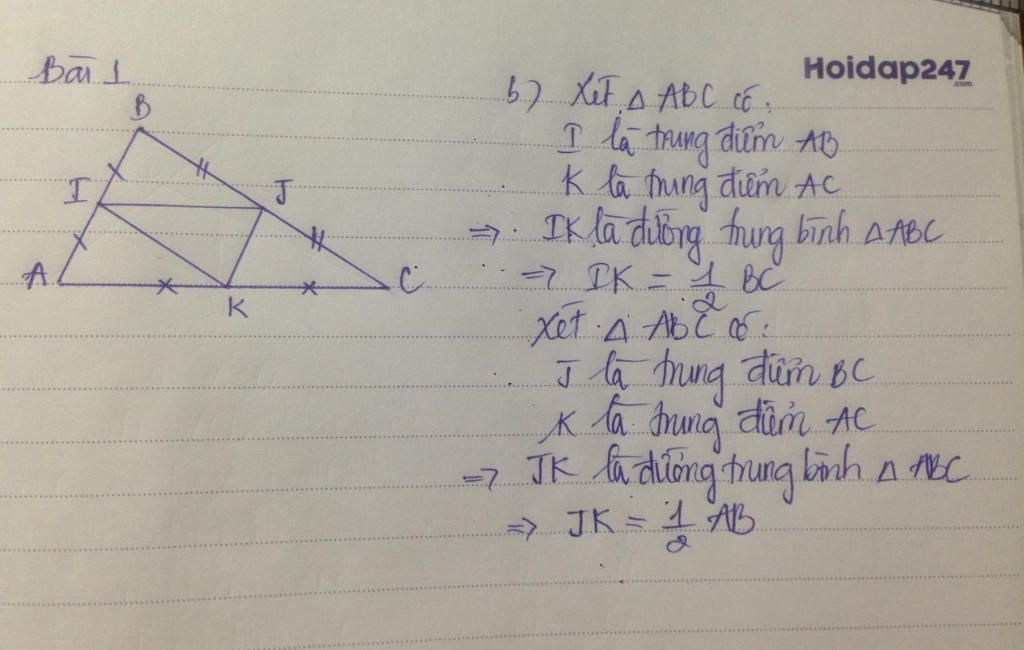 Bài 1
B
I
J
A
K
C
Hoidap247
.com
b) Xét Δ ABC có:
I là trung điểm AB
K là trung điểm AC
=> IK là đường trung bình Δ ABC
=> IK = 1/2 BC
Xét Δ ABC có:
J là trung điểm BC
K là trung điểm AC
=> JK là đường trung bình Δ ABC
=> JK = 1/2 AB